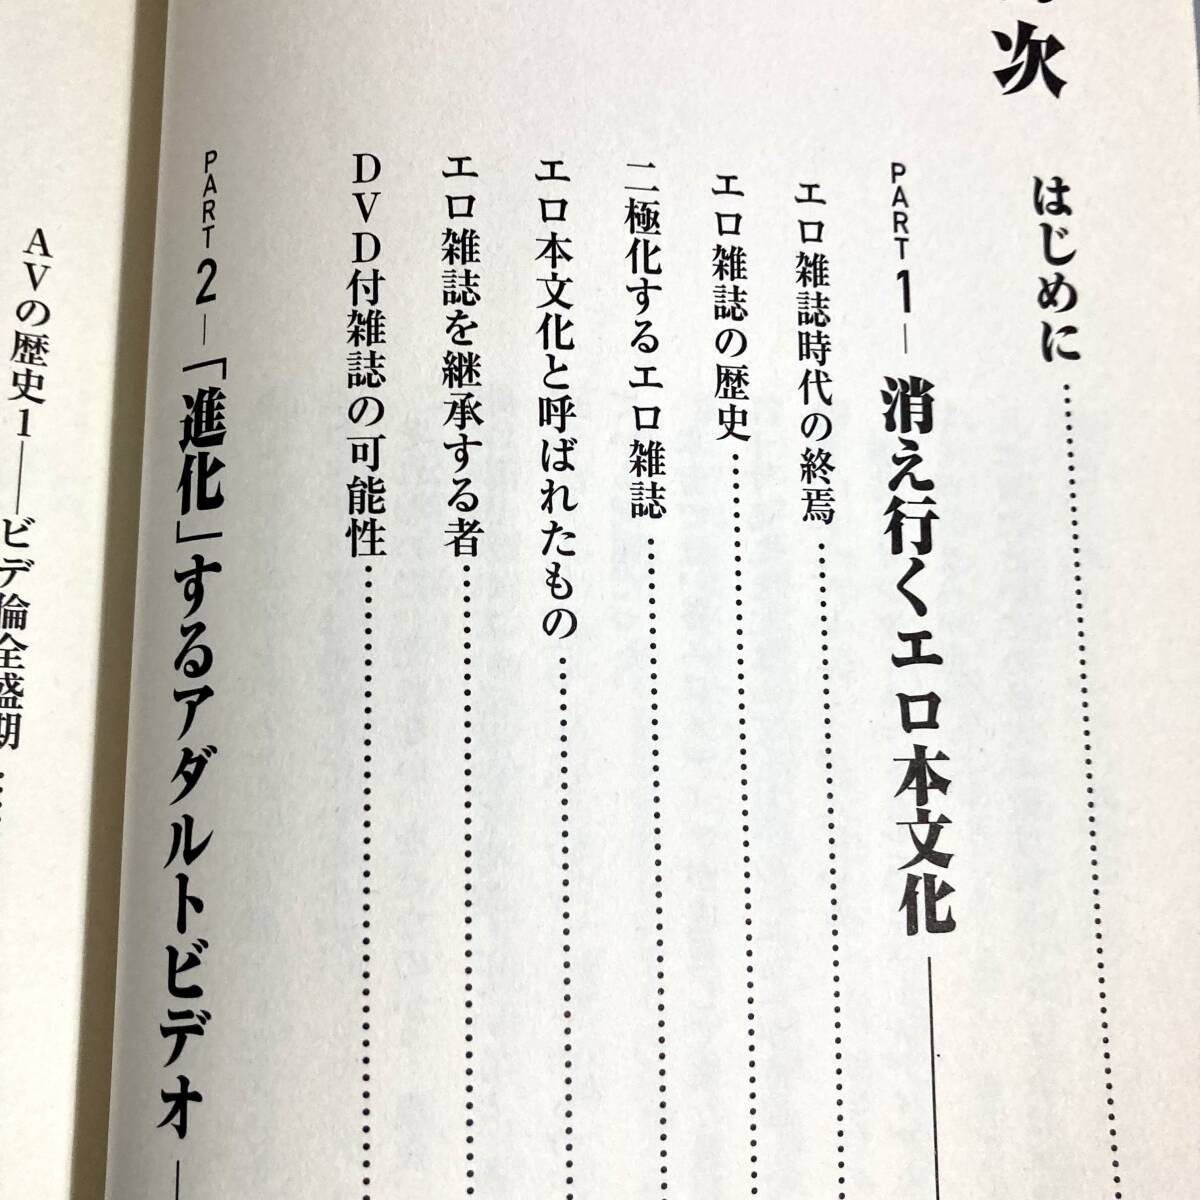 目次
はじめに
PART1―消え行くエロ本文化
エロ雑誌時代の終焉
エロ雑誌の歴史
二極化するエロ雑誌
エロ本文化と呼ばれたもの
エロ雑誌を継承する者
DVD付雑誌の可能性
PART2―「進化」するアダルトビデオ
AVの歴史1――ビデ倫全盛期